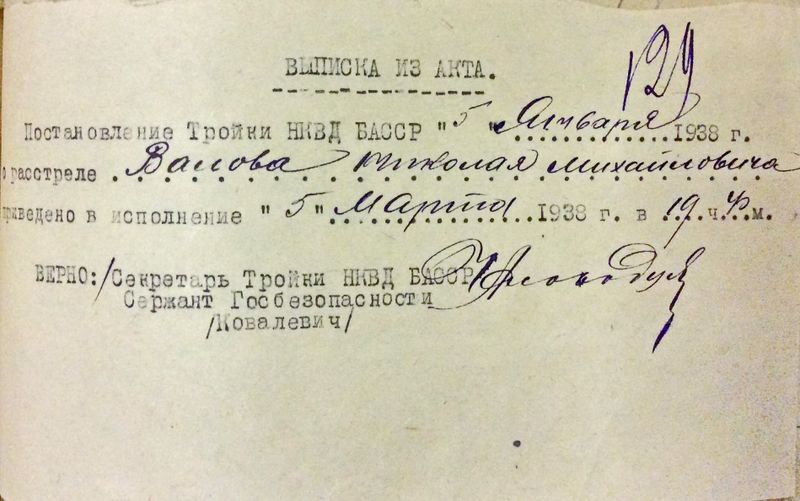 129
ВЫПИСКА ИЗ АКТА.
Постановление Тройки НКВД БАССР "5" Января 1938 г.
о расстреле Валова Николая Михайловича
приведено в исполнение "5" Марта 1938 г. в 19 ч. м.
ВЕРНО:/Секретарь Тройки НКВД БАССР
Сержант Госбезопасности
/Ковалевич/